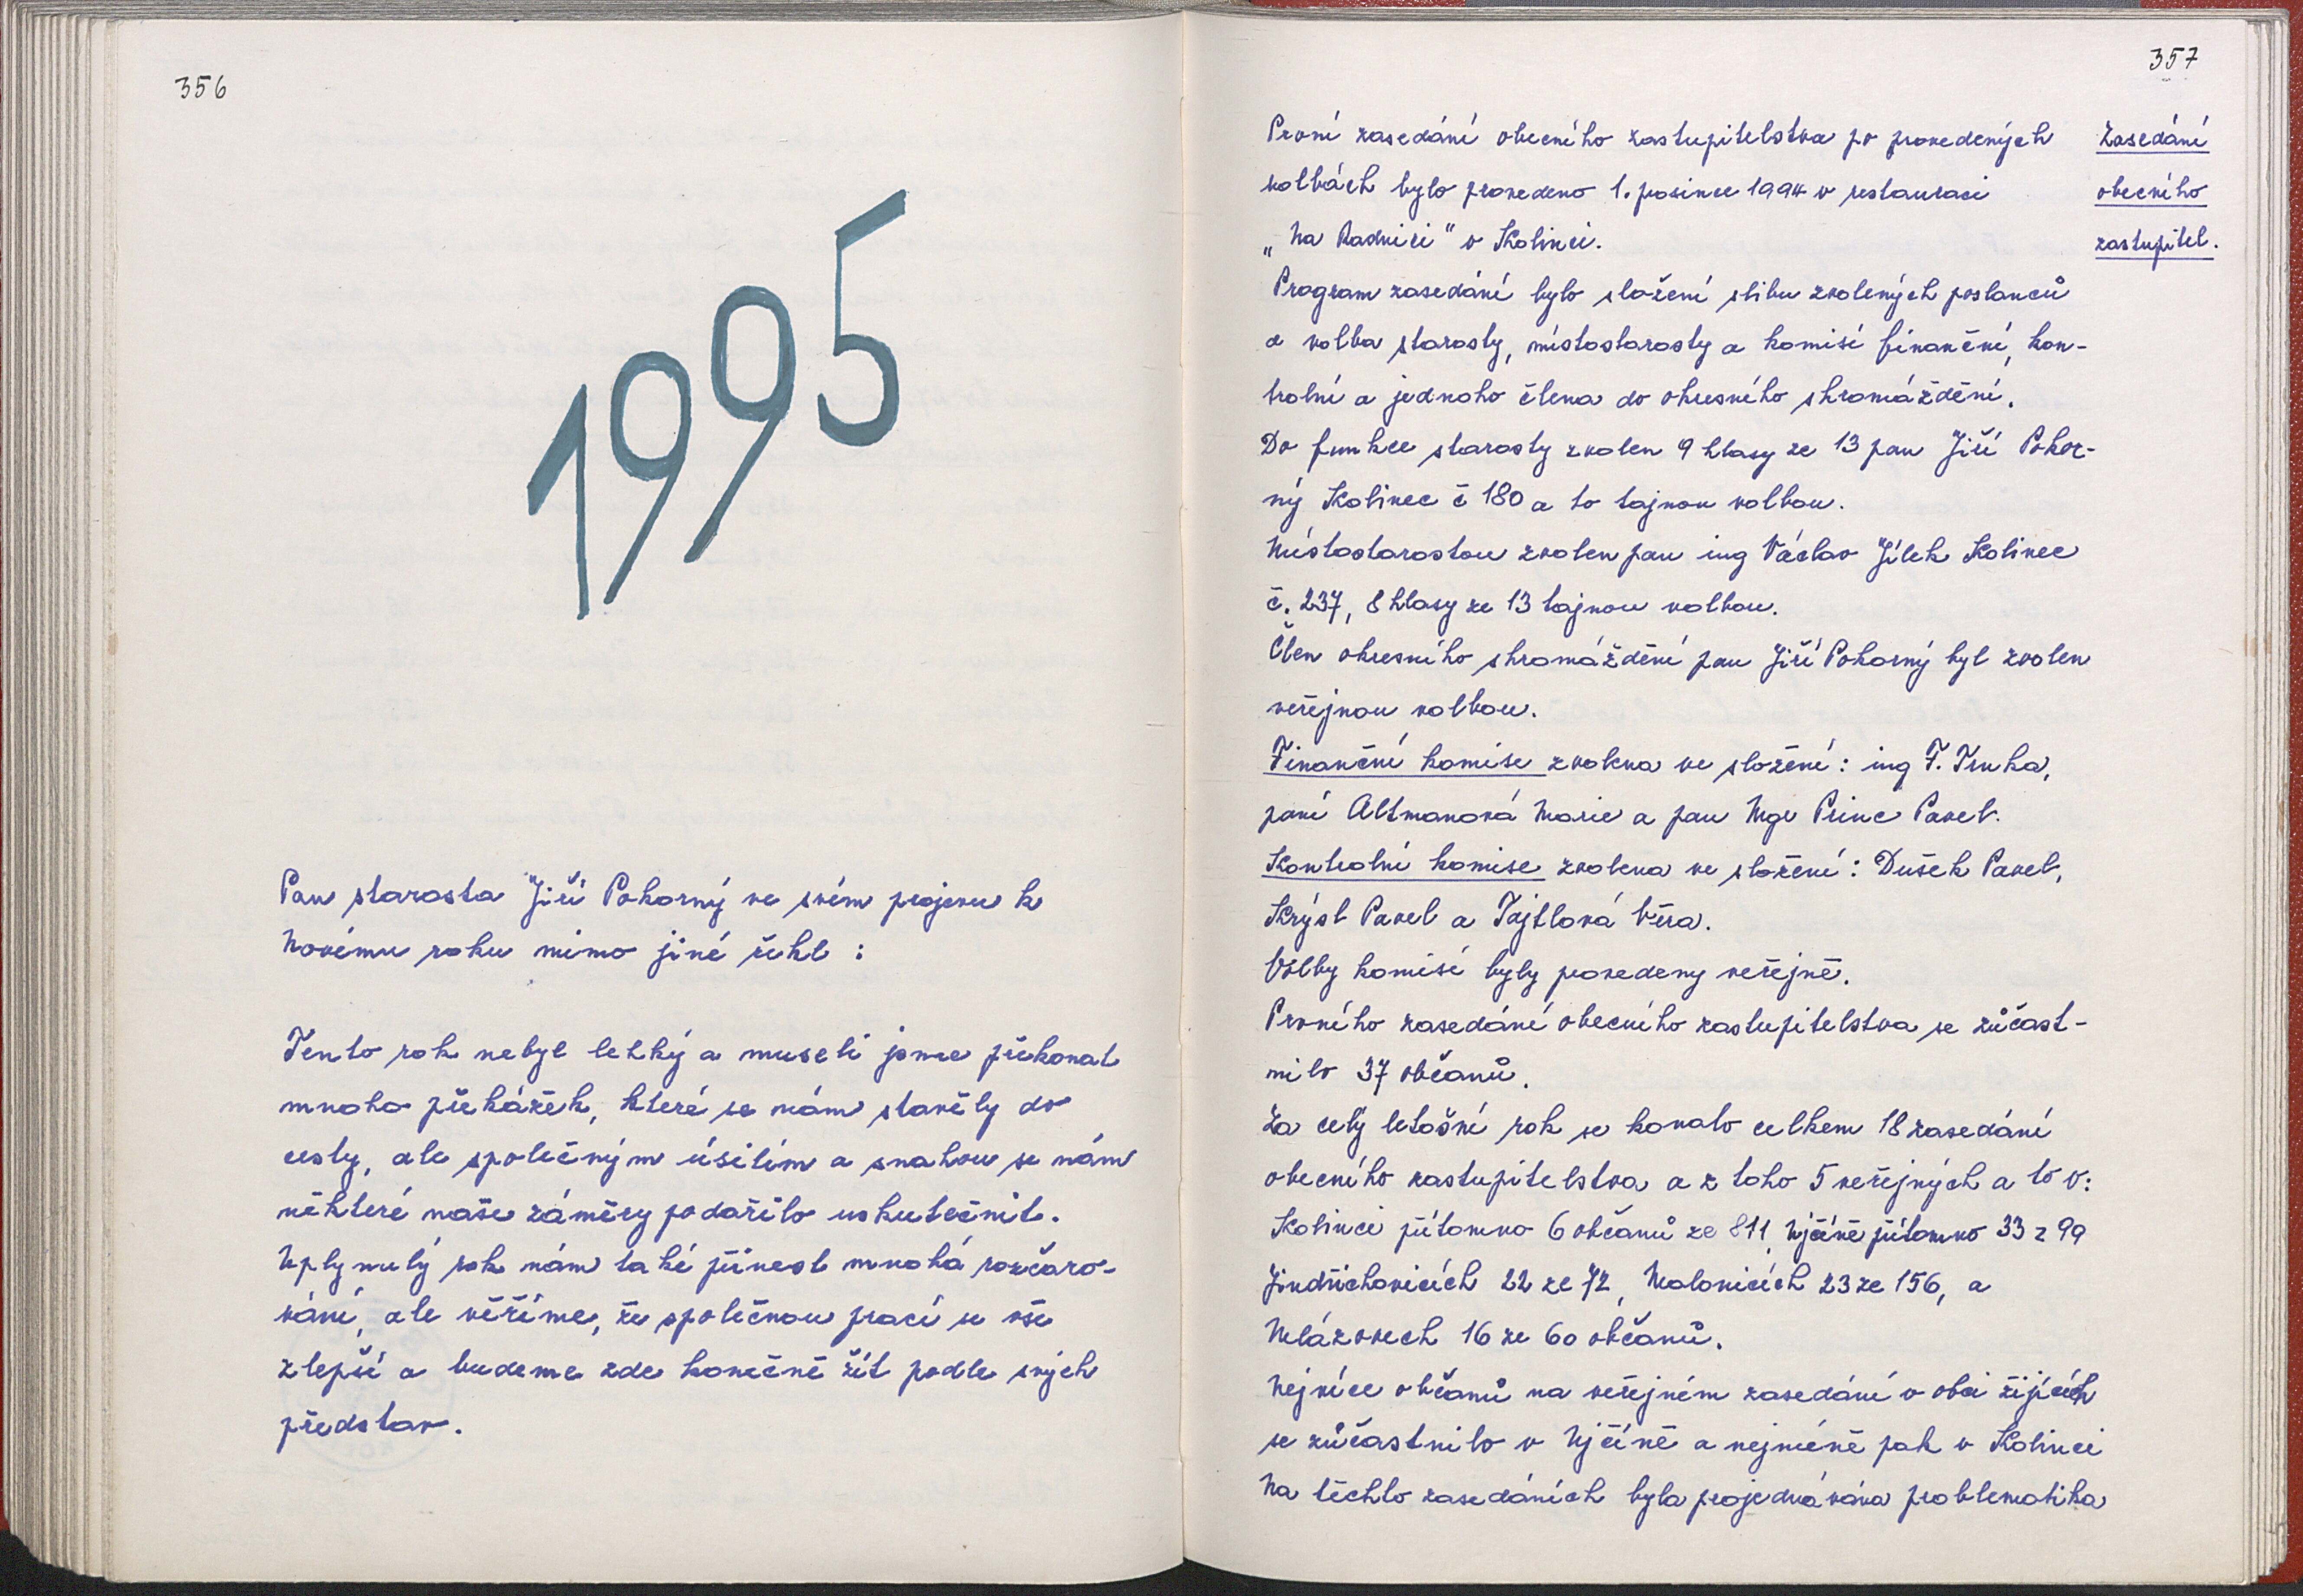 356
1995
Pan starosta Jiří Pokorný ve svém projevu k
Novému roku mimo jiné řekl :
Tento rok nebyl lehký a museli jsme překonat
mnoho překážek, které se nám stavěly do
cesty, ale společným úsilím a snahou se nám
některé naše záměry podařilo uskutečnit.
Uplynulý rok nám také přinesl mnohá rozčaro-
vání, ale věříme, že společnou prací se vše
zlepší a budeme zde konečně žít podle svých
představ.
357
První zasedání obecního zastupitelstva po provedených
volbách bylo provedeno 1. prosince 1994 v restauraci
„Na Radnici" v Kolinci.
Zasedání
obecního
zastupitel.
Program zasedání bylo složení slibu zvolených poslanců
a volba starosty, místostarosty a komisí finanční, kon-
trolní a jednoho člena do okresního shromáždění.
Do funkce starosty zvolen 9 hlasy ze 13 pan Jiří Pokor-
ný Kolinec č 180 a to tajnou volbou.
Místostarostou zvolen pan ing Václav Jílek Kolinec
č. 237, 8 hlasy ze 13 tajnou volbou.
Člen okresního shromáždění pan Jiří Pokorný byl zvolen
veřejnou volbou.
Finanční komise zvolena ve složení : ing F. Trnka,
paní Altmanová Marie a pan Mgr Princ Pavel.
Kontrolní komise zvolena ve složení : Dušek Pavel,
Krýsl Pavel a Tajtlová Věra.
Volby komisí byly provedeny veřejně.
Prvního zasedání obecního zastupitelstva se zůčast-
nilo 37 občanů.
Za celý letošní rok se konalo celkem 18 zasedání
obecního zastupitelstva a z toho 5 veřejných a to v:
Kolinci přítomno 6 občanů ze 811, Ujčíně přítomno 33 z 99
Jindřichovicích 22 ze 72, Malonicích 23 ze 156, a
Mlázovech 16 ze 60 občanů.
Nejvíce občanů na veřejném zasedání v obci žijících
se zůčastnilo v Ujčíně a nejméně pak v Kolinci
Na těchto zasedáních byla projednávána problematika